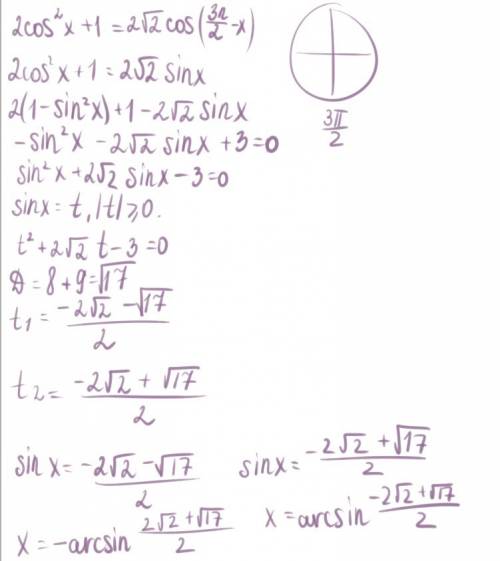 2cos²x + 1 = 2√2 cos(3π/2 - x)
2cos²x + 1 = 2√2 sinx
2(1 - sin²x) + 1 - 2√2 sinx
- sin²x - 2√2 sinx + 3 = 0
sin²x + 2√2 sinx - 3 = 0
sinx = t, |t| ≥ 0.
t² + 2√2 t - 3 = 0
D = 8 + 9 = √17
t₁ = (-2√2 - √17)/2
t₂ = (-2√2 + √17)/2
sinx = (-2√2 - √17)/2
x = -arcsin (2√2 + √17)/2
sinx = (-2√2 + √17)/2
x = arcsin (-2√2 + √17)/2
3π/2